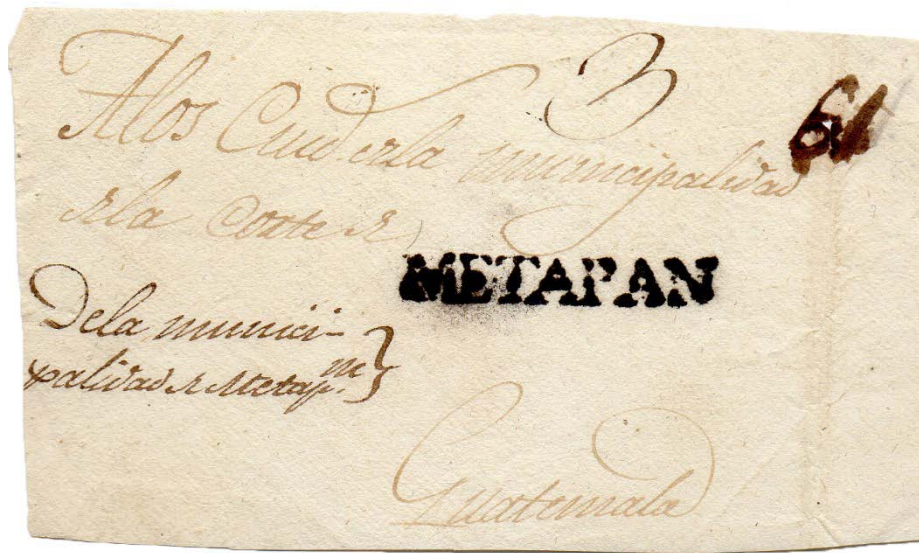 3
61
Alos Ciud. dela municipalidad
dla Corte d
METAPAN
Dela munici-
palidad d Metap.n
Guatemala